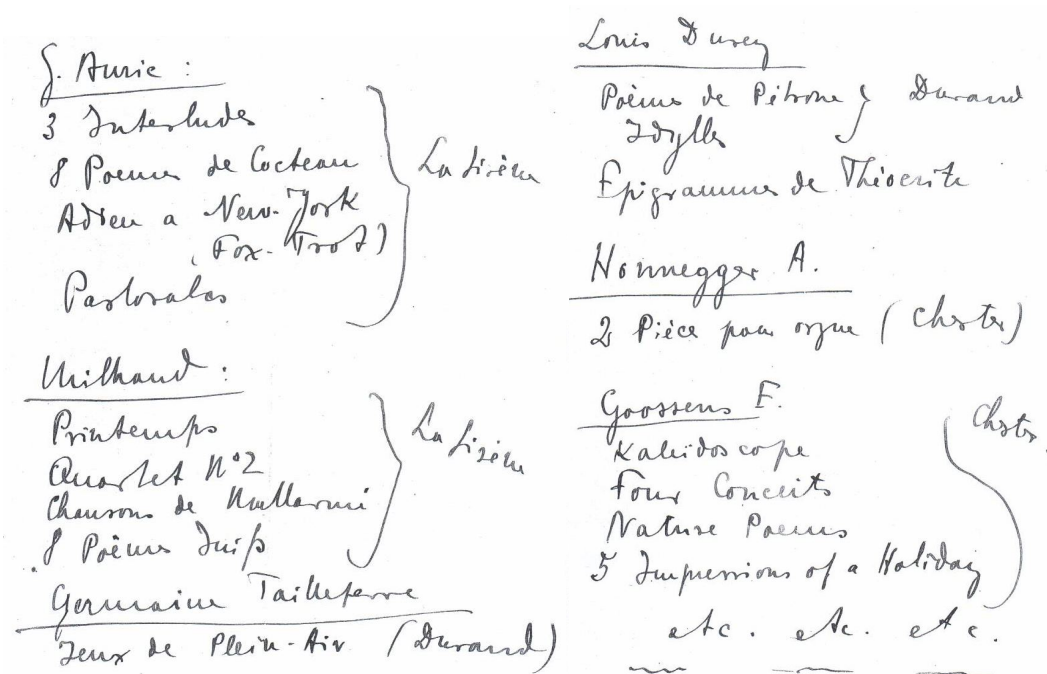 G. Auric :
3 Interludes
8 Poèmes de Cocteau
Adieu a New-York
(Fox-Trot)
Pastorales
La Sirène
Milhaud :
Printemps
Quartet N°2
Chansons de Mallarmé
8 Poèmes Juifs
La Sirène
Germaine Tailleferre
Jeux de Plein-Air (Durand)
Louis Durey
Poèmes de Pétrone } Durand
Idylles
Epigrammes de Théocrite
Honnegger A.
2 Pièce pour orgue (Chester)
Goossens E.
Kaleidoscope
Four Conceits
Nature Poems
5 Impressions of a Holiday
Chester
etc. etc. etc.